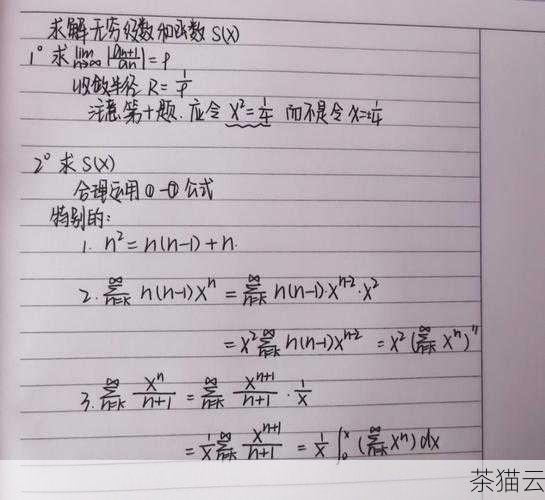 求解无穷级数和函数 S(X)
1° 求 lim_{n→∞} |a_{n+1}/a_n| = ρ
收敛半径 R = 1/ρ
注意第十题. 应令 X² = 1/4 而不是令 X = 1/4
2° 求 S(X)
合理运用 ① - ⑦ 公式
特别的:
1. n² = n(n-1) + n.
2. ∑_{n=k}^{∞} n(n-1)X^n = ∑_{n=k}^{∞} n(n-1)·X^{n-2}·X²
= X² ∑_{n=k}^{∞} n(n-1)X^{n-2} = X² (∑_{n=k}^{∞} X^n)''
3. ∑_{n=k}^{∞} X^n/(n+1) = ∑_{n=k}^{∞} X^{n+1}/(n+1) · 1/X
= 1/X ∑_{n=k}^{∞} X^{n+1}/(n+1) = 1/X ∫_0^X (∑_{n=k}^{∞} X^n) dX
茶猫云